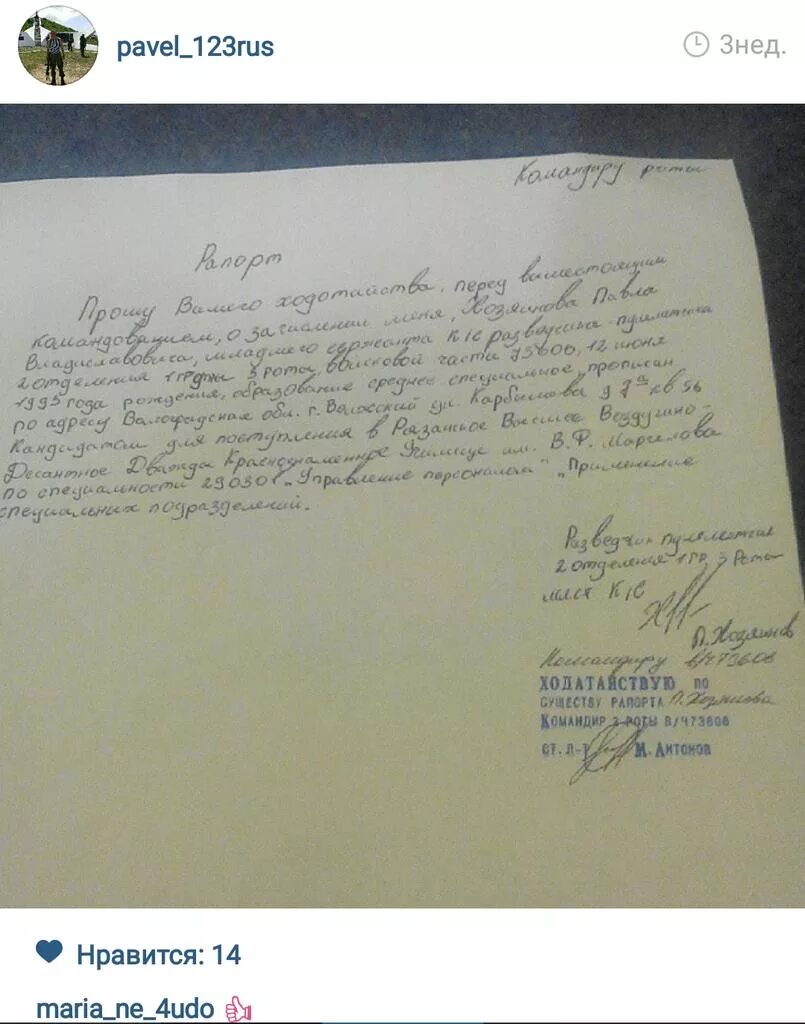 pavel_123rus
3нед.
Командиру роты
Рапорт
Прошу Вашего ходотайства, перед вышестоящим
командованием, о зачислении меня, Хозяинова Павла
Владиславовича, младшего сержанта К/С разведчика-пулеметчика
2 отделения 1 группы 3 роты, войсковой части 73600, 12 июня
1995 года рождения, образование среднее специальное, прописан
по адресу Волгоградская обл. г. Волжский ул. Карбышева кв 56
Кандидатом для поступления в Рязанское Высшее Воздушно-
Десантное Дважды Краснознаменное Училище им. В.Ф. Маргелова
по специальности 290301 „Управление персоналом" „Применение
специальных подразделений.
Разведчик пулеметчик
2 отделения 1 гр. 3 Роты
К/С
П. Хозяинов
Командиру в/ч 73608
ХОДАТАЙСТВУЮ ПО
СУЩЕСТВУ РАПОРТА П. Хозяинова
КОМАНДИР 3 РОТЫ В/Ч73608
СТ. Л-Т М. АНТОНОВ
Нравится: 14
maria_ne_4udo 👍